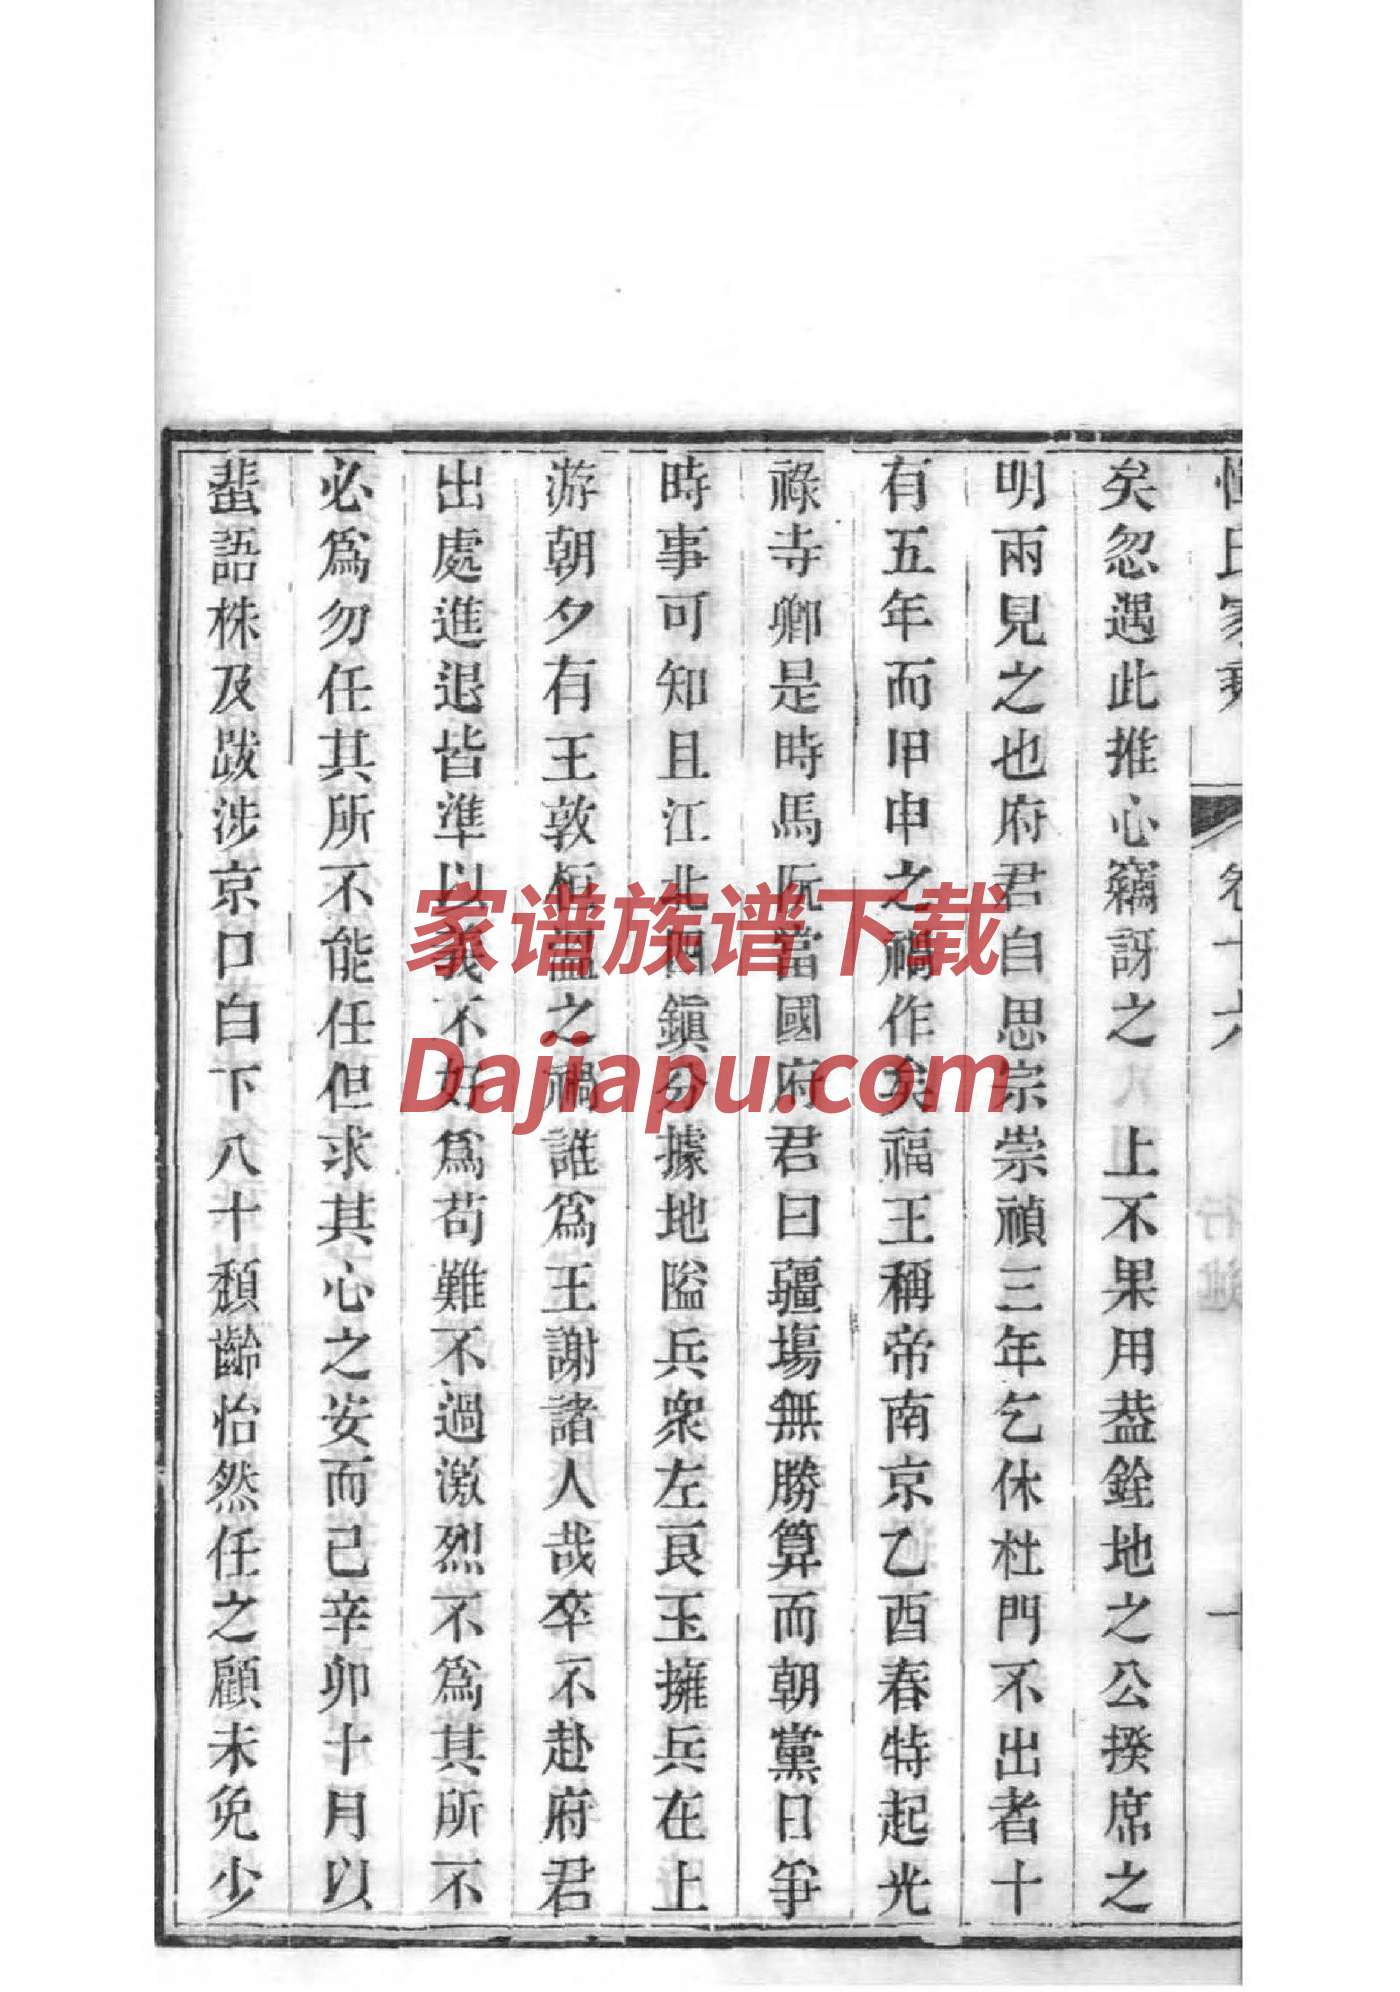 惲氏家乘 卷十六 行述 十
矣忽遇此推心竊訝之 上不果用葢銓地之公揆席之
明兩見之也府君自思宗崇禎三年乞休杜門不出者十
有五年而甲申之禍作矣福王稱帝南京乙酉春特起光
祿寺卿是時馬阮當國府君曰疆場無勝算而朝黨日爭
時事可知且江北四鎮分據地隘兵衆左良玉擁兵在上
游朝夕有王敦桓溫之禍誰爲王謝諸人哉卒不赴府君
出處進退皆準以義不好爲苟難不過激烈不爲其所不
必爲勿任其所不能任但求其心之安而己辛卯十月以
蜚語株及跋涉京口白下八十頽齡怡然任之顧未免少
家谱族谱下载
Dajiapu.com